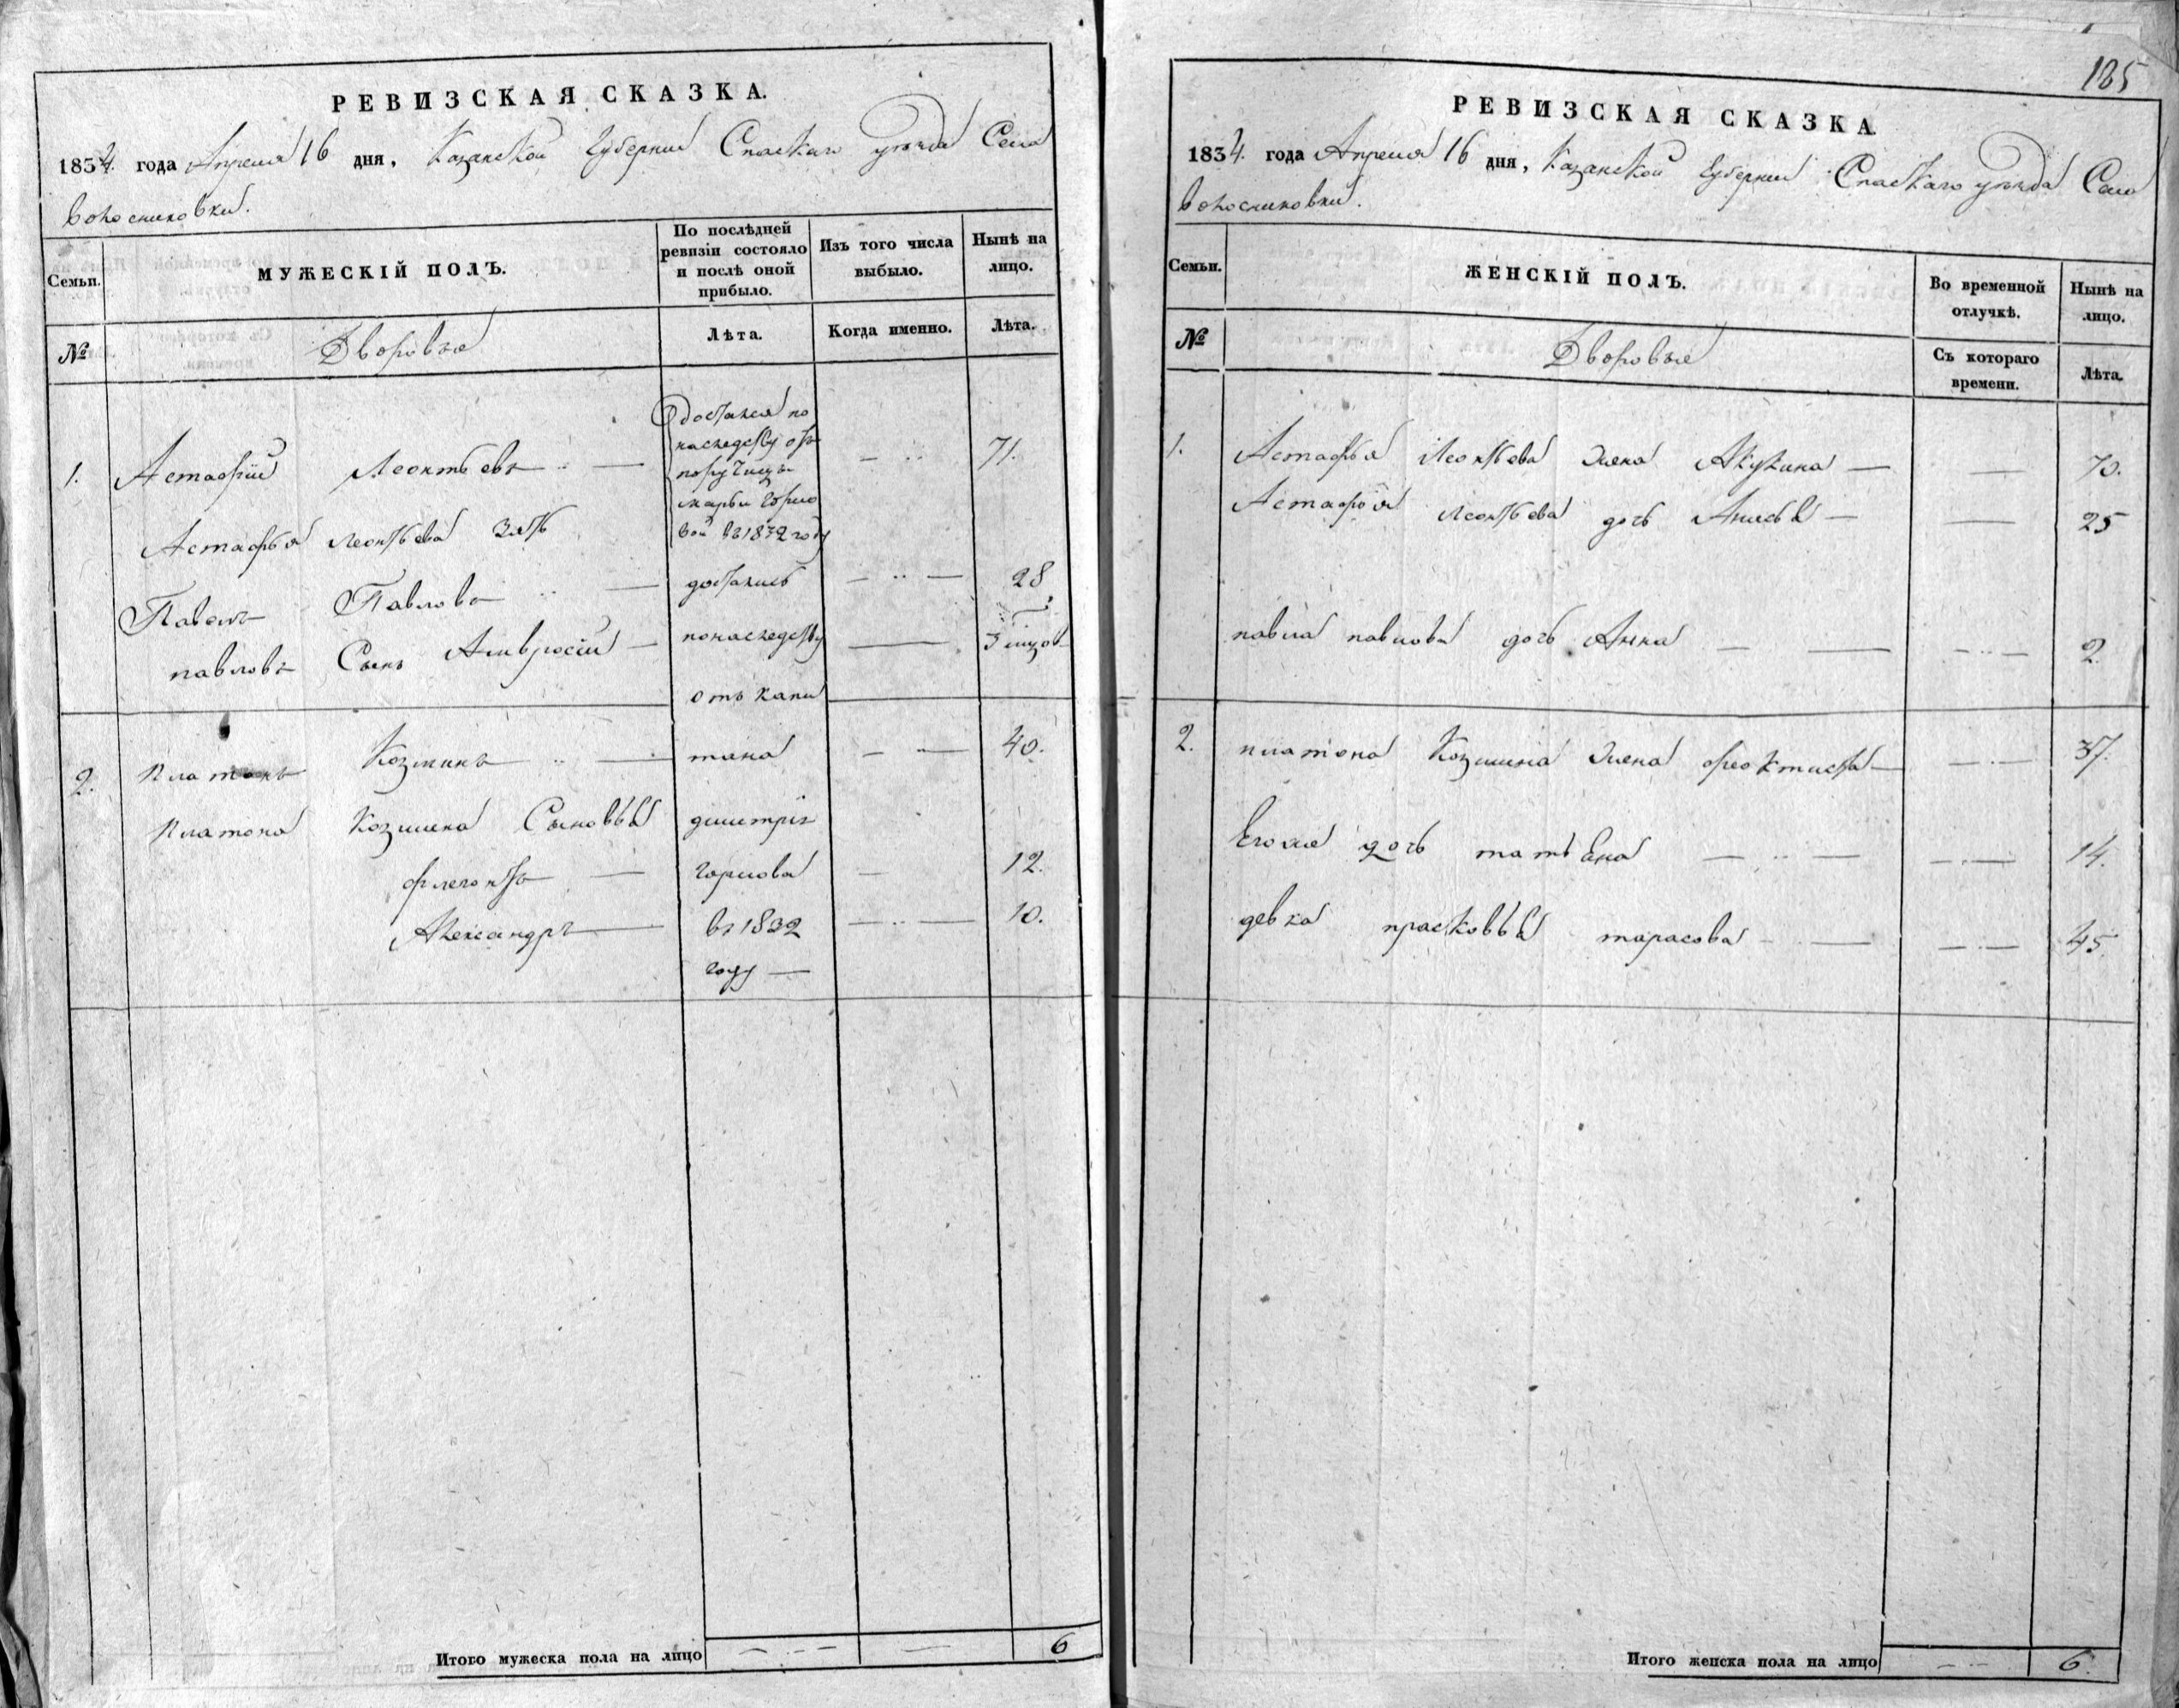 РЕВИЗСКАЯ СКАЗКА.
1834. года Апреля 16 дня, Казанской Губернии Спаскаго уезда Села
Волосниковки.
Семьи.
МУЖЕСКІЙ ПОЛЪ.
По послѣдней ревизіи состояло и послѣ оной прибыло.
Изъ того числа выбыло.
Нынѣ на лицо.
№
Дворовые
Лѣта.
Когда именно.
Лѣта.
1. Астафій Леонтьевъ 71.
достался по
наследству отъ
поручицы
марьи Горло
вой въ 1832 году
Астафья Леонтьева Зять
Павелъ Павловъ достались 28
павловъ Сынъ Амвросій понаследству 3 мцов
отъ капи
2. платонъ Козминъ тана 40.
платона Козмина Сыновья димитрія
флегонтъ горлова 12.
Александръ въ 1832 10.
году
Итого мужеска пола на лицо 6
185
РЕВИЗСКАЯ СКАЗКА.
1834. года Апреля 16 дня, Казанской Губернии Спаскаго уезда Села
Волосниковки.
Семьи.
ЖЕНСКІЙ ПОЛЪ.
Во временной отлучкѣ.
Нынѣ на лицо.
№
Дворовые
Съ котораго времени.
Лѣта.
1. Астафья Леонтьева жена Акулина 70.
Астафья Леонтьева дочь 25
павла павлова дочь Анна 2.
2. платона Козмина жена феоктиста 37.
Егоже дочь татьяна 14.
девка прасковья тарасова 45.
Итого женска пола на лицо 6.